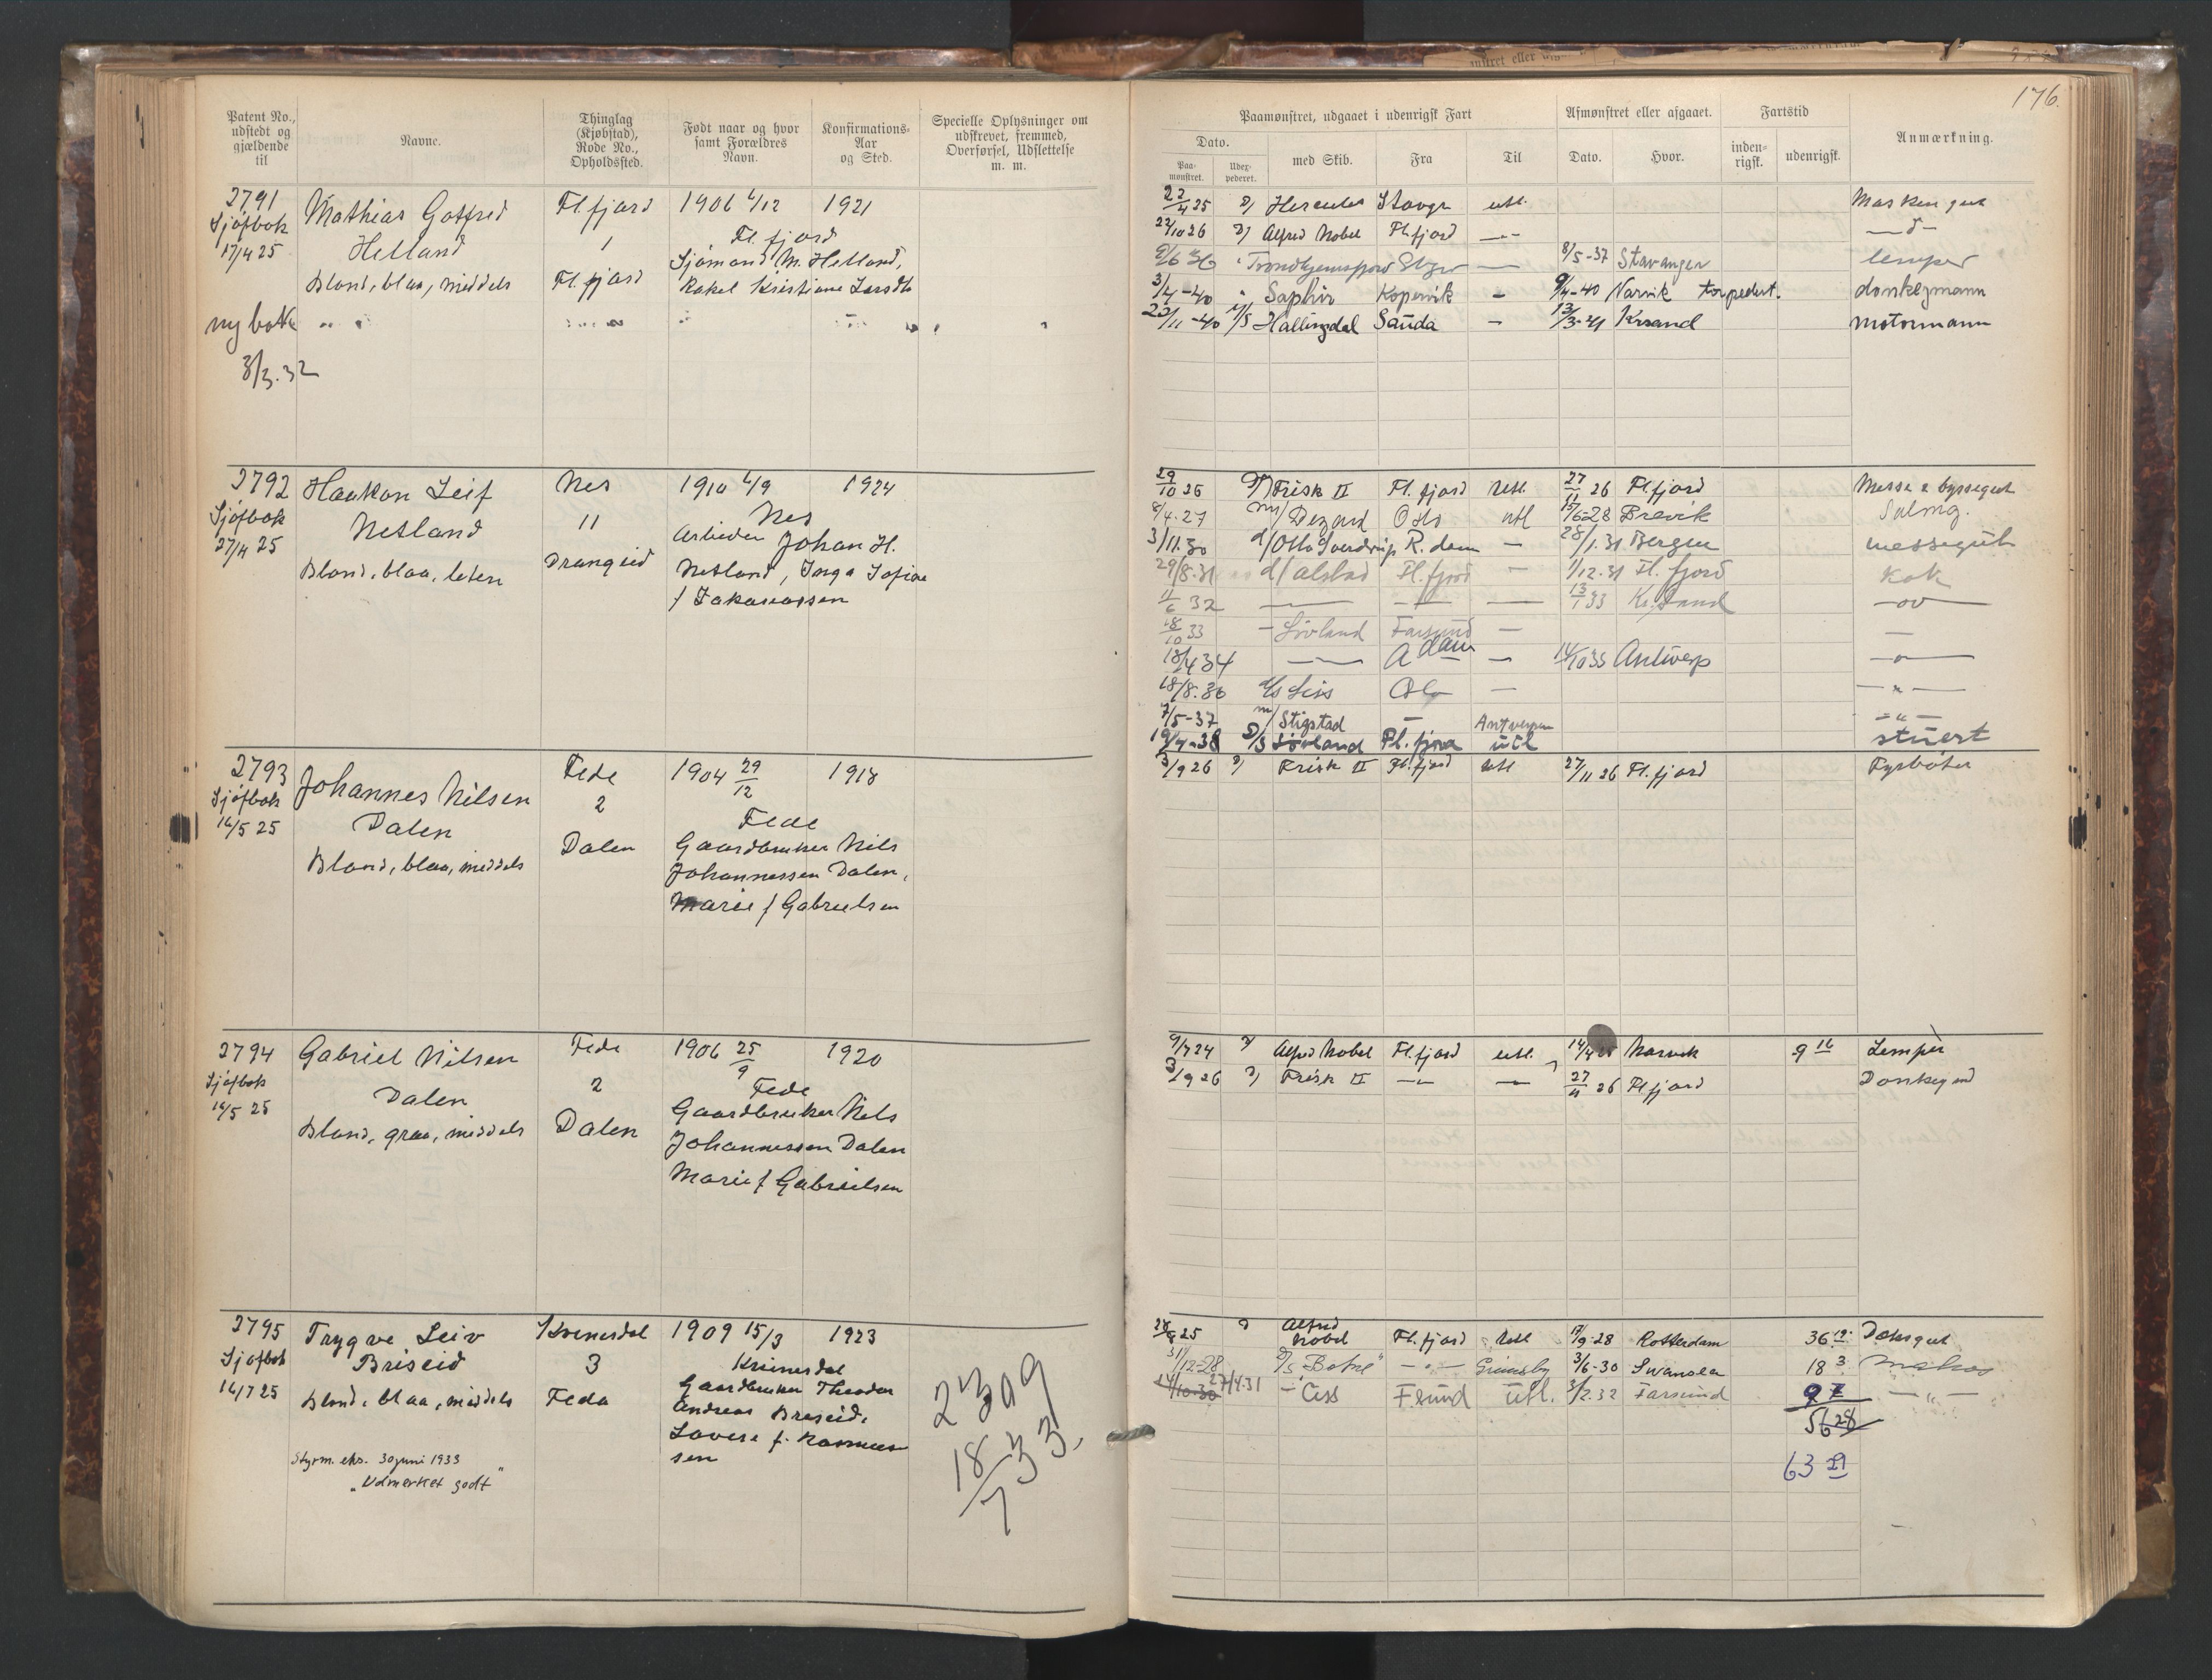 176.
Patent No., udstedt og gjældende til
Navne.
Thinglag (Kjøbstad), Rode No., Opholdssted.
Født naar og hvor samt Forældres Navn.
Konfirmations-Aar og Sted.
Specielle Oplysninger om udskrevet, fremmed, Overførsel, Udslettelse m. m.
Paamønstret, udgaaet i udenrigsk Fart
Afmønstret eller afgaaet.
Fartstid
Anmærkning.
Dato.
Paa-mønstret.
Udex-pederet.
med Skib.
Fra
Til
Dato.
Hvor.
inden-rigsk.
udenrigsk.
2791 Mathias Gotfred Fl.fjord 1906 4/12 1921
Sjøfbok Helland 1 Fl.fjord
17/4 25 Sjømand M. Helland,
Blond, blaa, middels Fl.fjord Rakel Kristiane Larsdtr
ny bok
8/3.32
22/4 25 D/ Hercules Stavgr utl. Maskingut
22/10 26 D/ Alfred Nobel Fl.fjord
9/6 36 Trondhjemsfjord 8/5-37 Stavanger lemper
3/4-40 Saphir Kopervik - 9/4-40 Narvik torpedert. donkeymann
23/11-40 M/S Hallingdal Sauda - 13/3-41 Krsand motormann
2792 Haakon Leif Nes 1910 4/9 1924
Sjøfbok Netland 11 Nes
27/4 25 Arbeider Johan H.
Blond, blaa, liten Drangeid Netland, Inga Sofie
f Zakariassen
29/10 26 D/ Frisk II Fl.fjord utl. 27/11 26 Fl.fjord Messe & byssegut
8/4.27 m/ Oslo utl 15/6-28 Brevik Salmg.
3/11.30 d/ Otto Sverdrup R.dam - 28/1.31 Bergen messegut
29/8.31 d/ Alstad Fl.fjord - 1/12.31 Fl.fjord Kok
11/6 32 — — — 13/1 33 Kr.sand
18/10 33 - Livland Farsund —
18/4 34 — A dam — 14/10 35 Antwerp
18/8.36 d/s Liss Oslo —
7/5-37 m/ Stigstad - Antverpen
19/4-38 D/S Fl.fjord utl stuert
2793 Johannes Nilsen Fede 1904 29/12 1918
Sjøfbok Dalen 2 Fede
16/5 25 Blond, blaa, middels Dalen Gaardbruker Nils
Johannessen Dalen,
Marie f Gabrielsen
3/9 26 D/ Frisk II Fl.fjord utl 27/11 26 Fl.fjord Fyrbøter
2794 Gabriel Nilsen Fede 1906 25/9 1920
Sjøfbok Dalen 2 Fede
16/5 25 Gaardbruker Nils
Blond, graa, middels Dalen Johannessen Dalen
Marie f Gabrielsen
9/7 24 D/ Alfred Nobel Fl.fjord utl. Narvik 9 16 Lemper
3/9 26 D/ Frisk II — — 27/11 26 Fl.fjord Donkeymd
2795 Trygve Leiv Kvinesdal 1909 15/3 1923
Sjøfbok Briseid 3 Kvinesdal
16/7 25 Blond, blaa, middels Feda Gaardbruker Theodor
Andreas Breseid,
Lovise f. Rasmus
sen
Styrm. eks. 30 juni 1933
"Udmerket godt"
2309
18/7 33.
28/8 25 D Alfred Nobel Fl.fjord utl 9/9-28 Rotterdam 36 12 Dæksgut
31/12-28 D/S "Botne" — Grimsby 3/6-30 Swansea 18 3 Matros
14/10-30 27/4.31 - Ciss Fsund utl. 3/2.32 Farsund 9 7 — " —
56 28
63 29